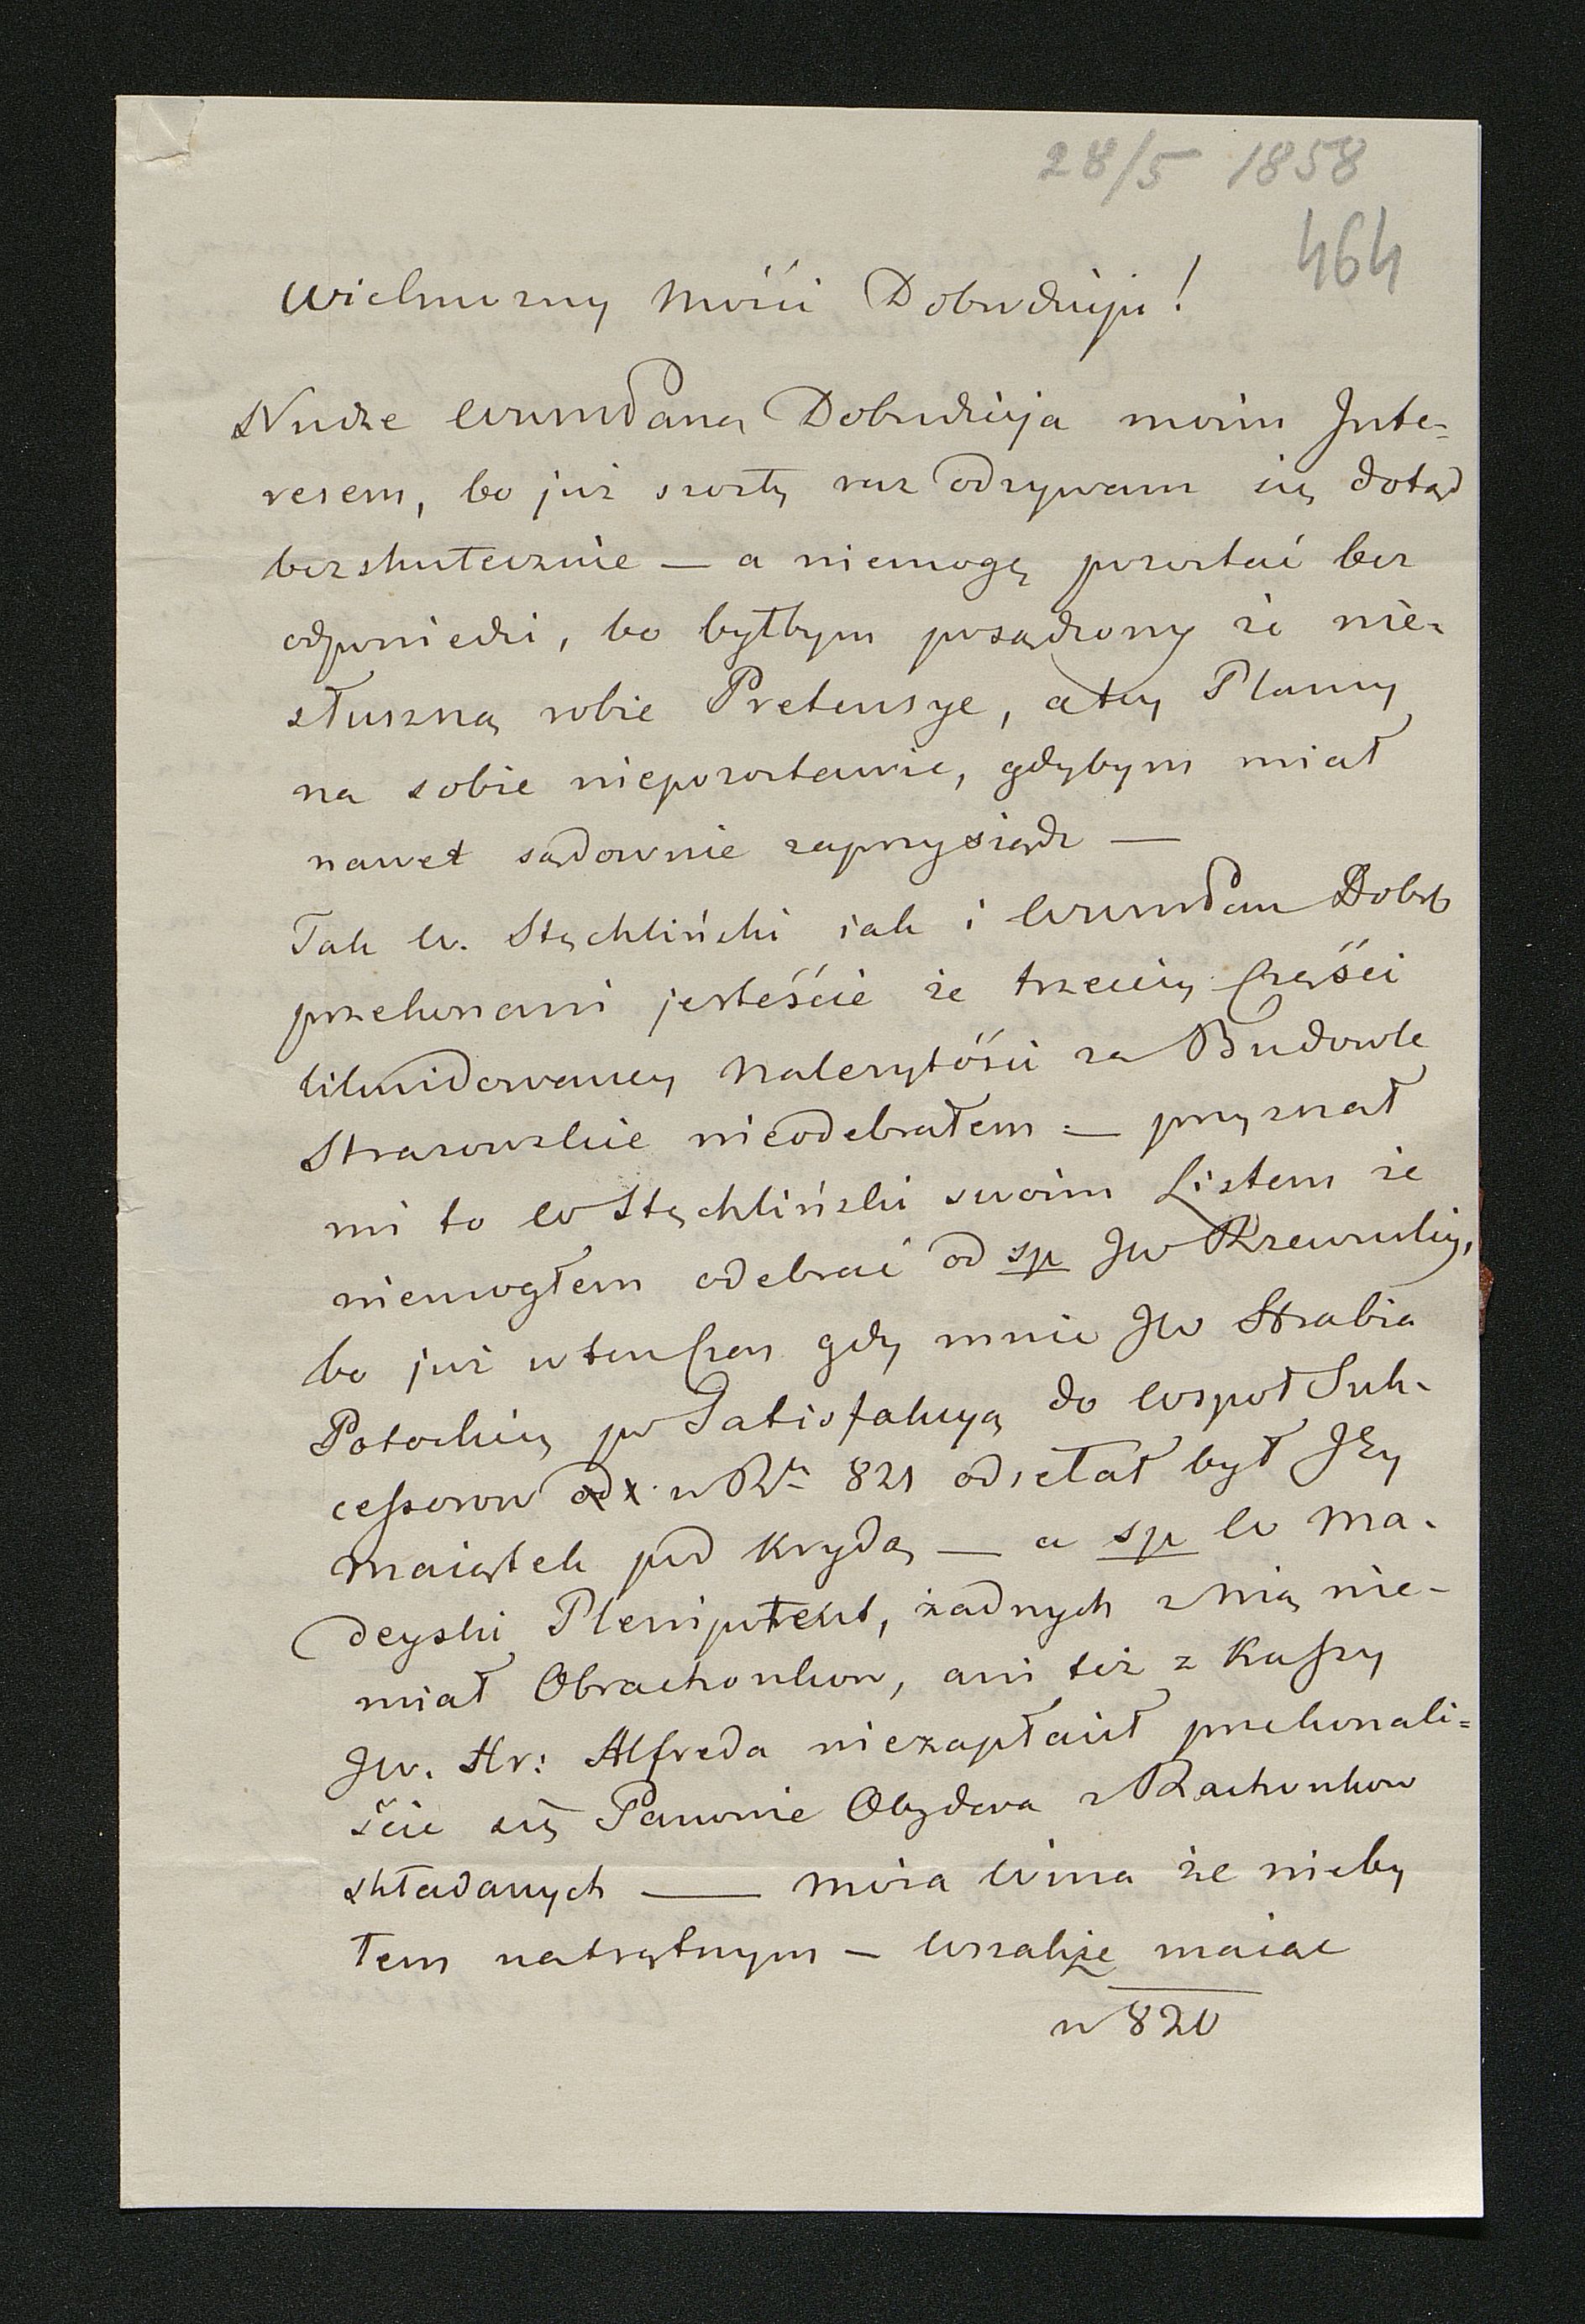 28/5 1858
464
Wielmozny Mości Dobrodzieju!
Nudze WnmPana Dobrodzieja moim Inte-
resem, bo już szosty raz odzywam się dotąd
bezskutecznie — a niemogę pozostać bez
odpowiedzi, bo byłbym posądzony że nie-
słuszną robie Pretensye, a tey Plamy
na sobie niepozostawie, gdybym miał
nawet sądownie zaprzysiądz —
Tak W. Stęchliński iak i WnmPan Dobr
przekonani jesteście że trzeciey Części
likwidowaney Należytości za Budowle
Strasowskie nieodebrałem — przyznał
mi to W Stęchliński swoim Listem że
niemogłem odebrać od sp JW Rzewuskiey,
bo już wtenczas gdy mnie JW Hrabia
Potockiey po Satisfakcyą do Wspoł Suk-
cessorow w Rr 821 odsełał był Jey
maiątek pod Krydą — a sp W Ma-
deyski Plenipotent, żadnych z Nią nie-
miał Obrachonkow, ani też z Kassy
JW. Hr: Alfreda niezapłacił przekonali-
ście się Panowie Obydwa z Rachonkow
składanych — moia wina że nieby
łem natrętnym — Wszakże maiąc
w 820